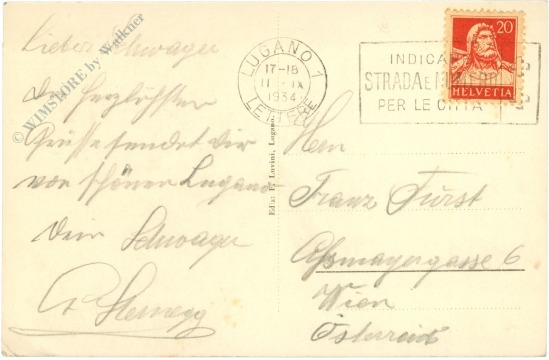 Lieber Schwager
Die herzlichsten
Grüsse sendet dir
vom schönen Lugano
Dein Schwager
© WIMSTORE by Walkner
LUGANO 1
17-18
11 IX
1934
LETTERE
INDICA
STRADA E
PER LE CITTA
20
HELVETIA
Ediz. F. Luvini, Lugano.
Herrn
Franz Fürst
Aßmayergasse 6
Wien
Österreich